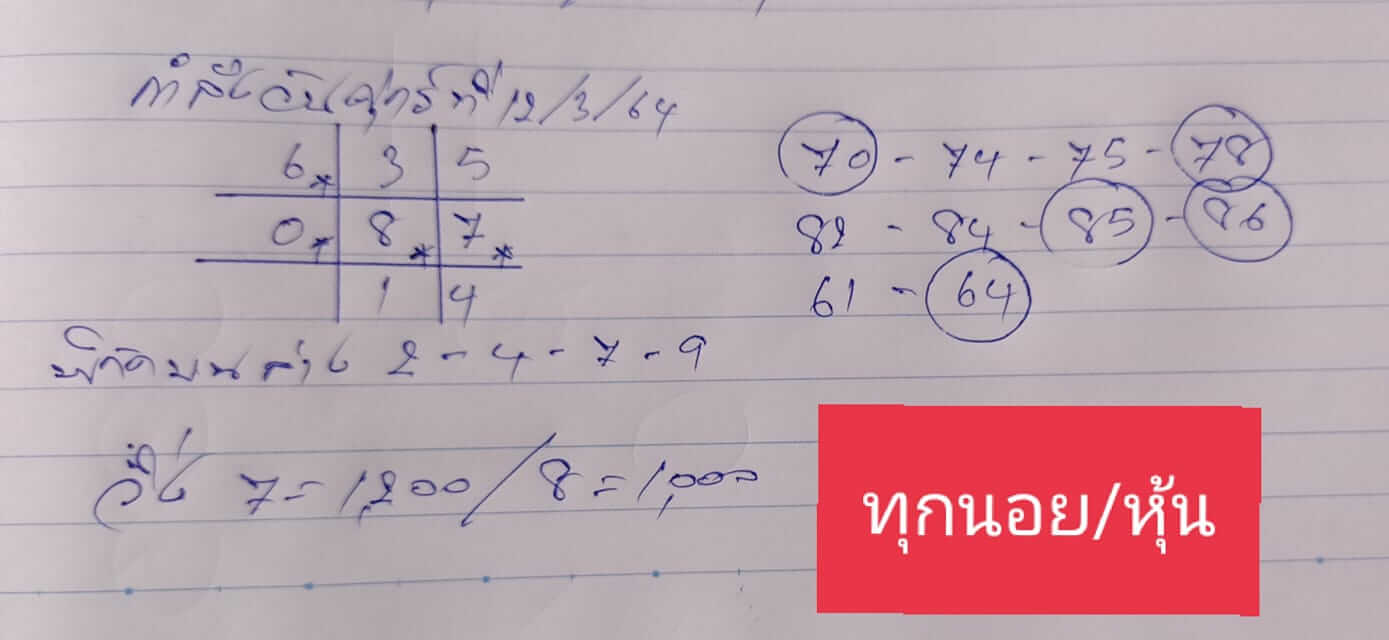 กำลังวันศุกร์ที่ 12/3/64
6* 3 5
0* 8* 7*
1 4
70 - 74 - 75 - 78
82 - 84 - 85 - 86
61 - 64
พิกัดบนล่าง 2 - 4 - 7 - 9
วิ่ง 7 = 1,200 / 8 = 1,000
ทุกนอย/หุ้น